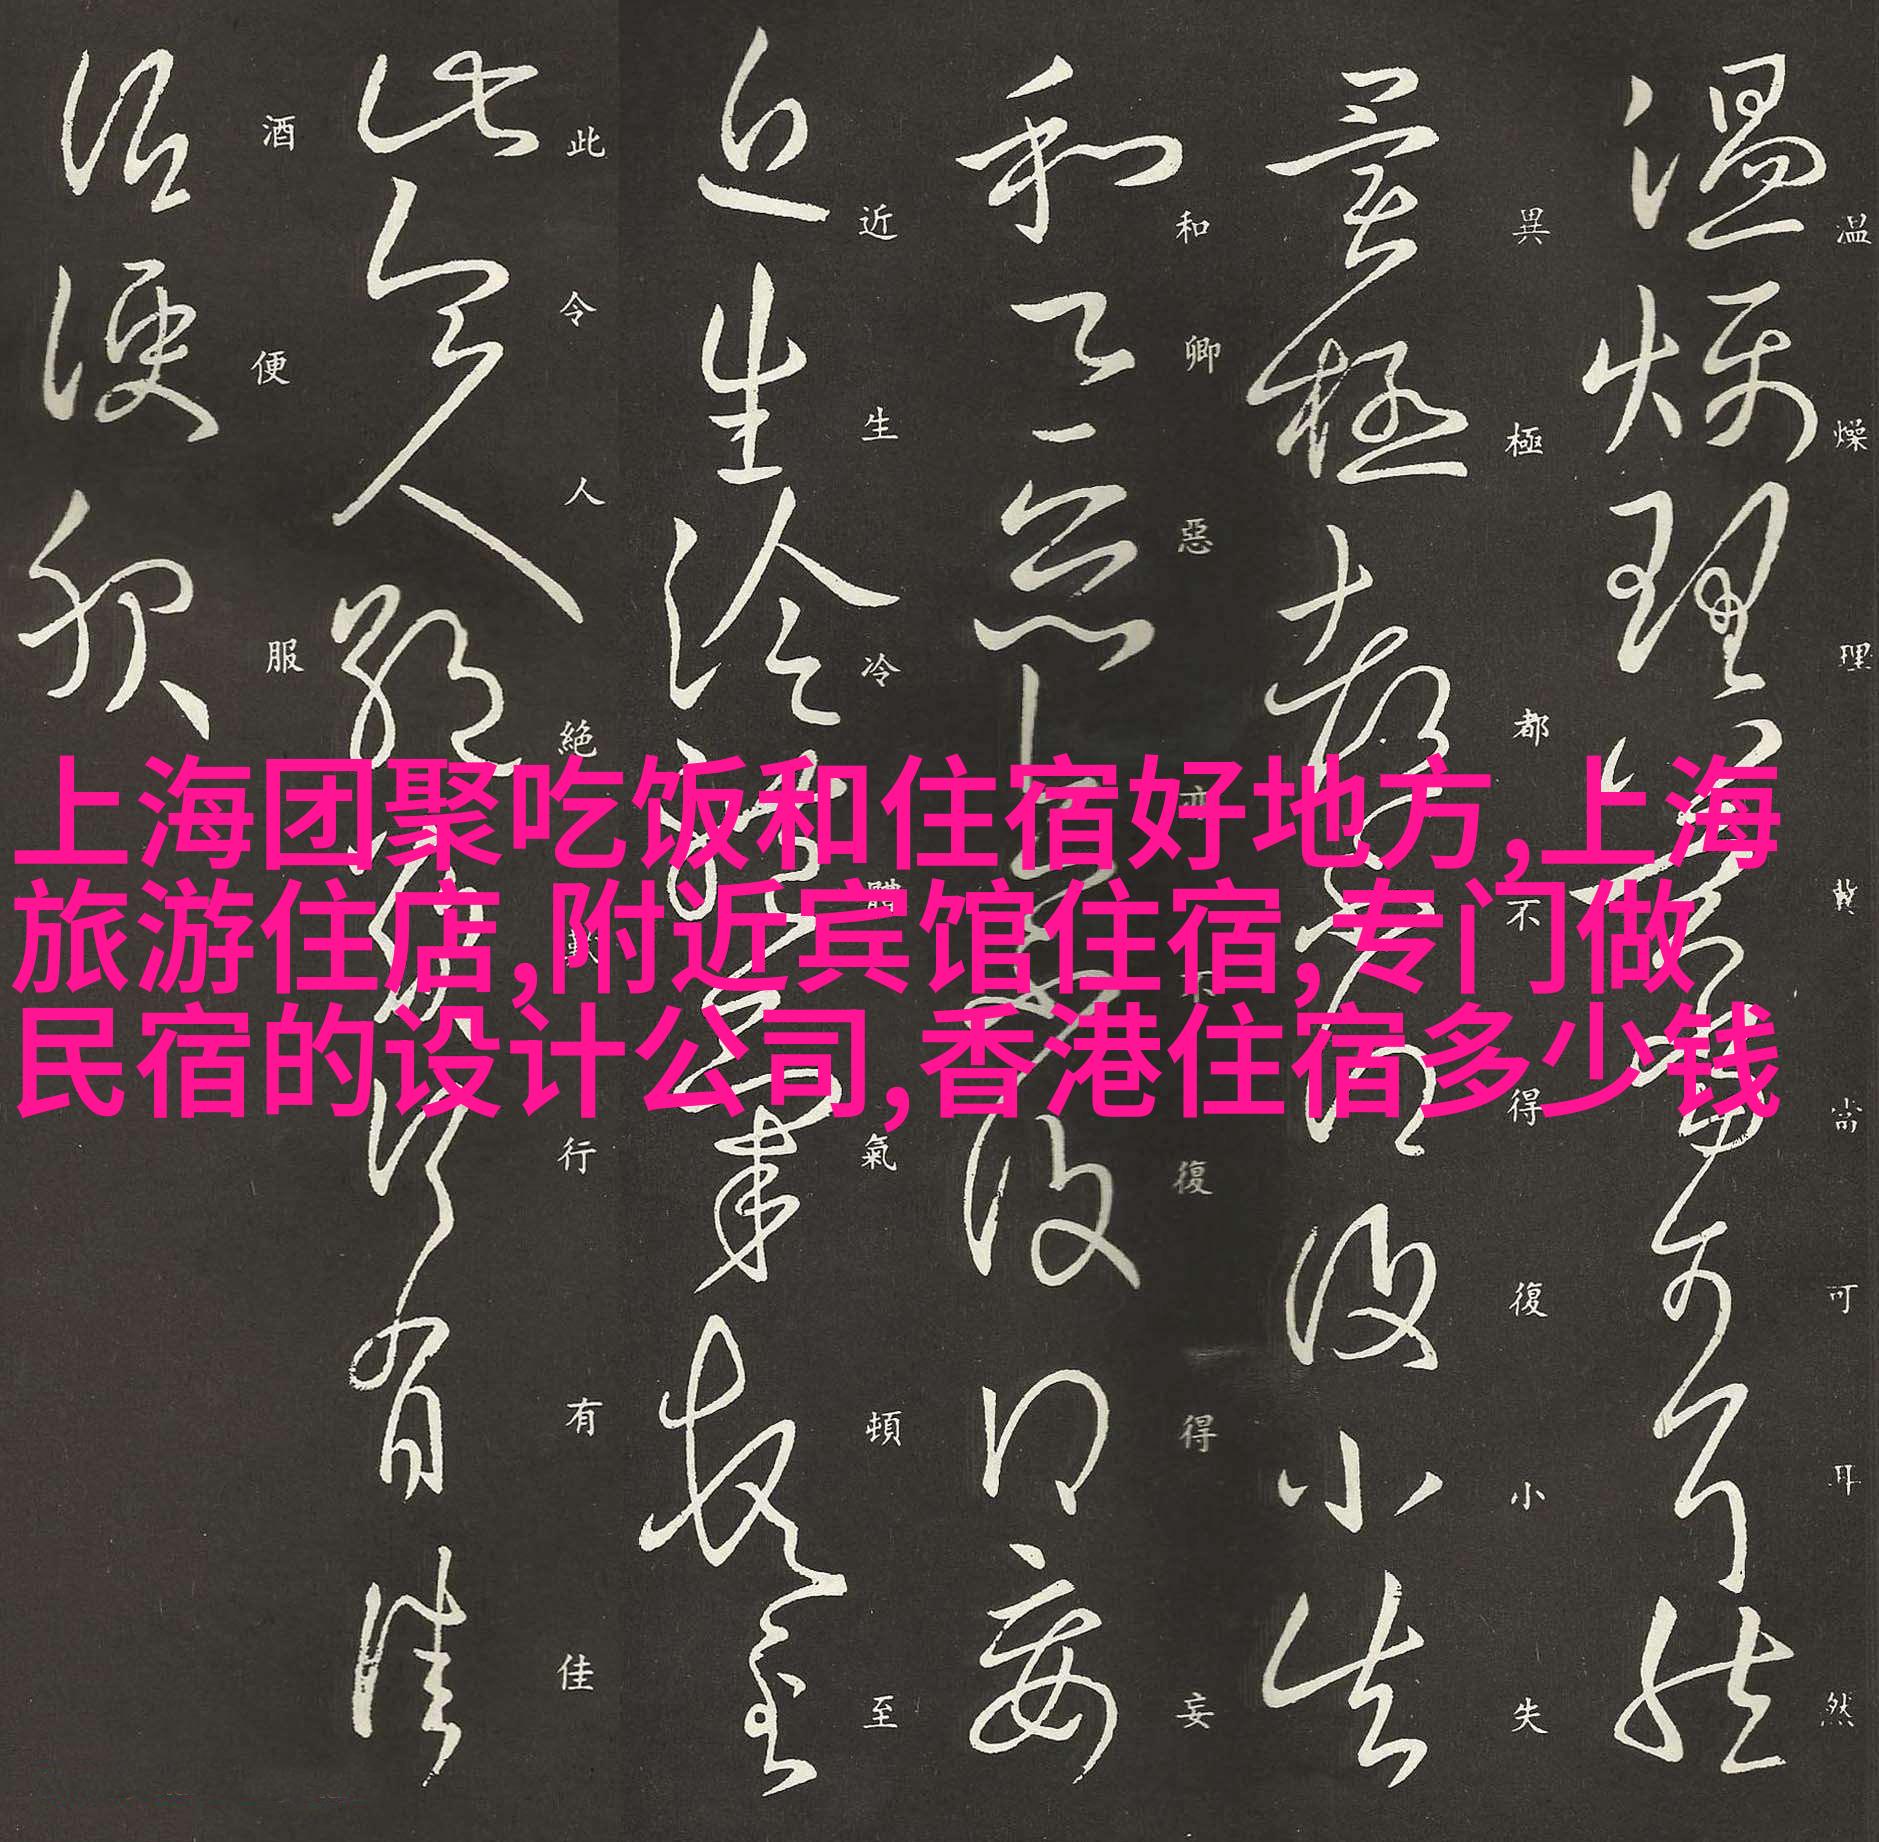 温燥理冀尚可耳然
異極都不得復小失
和卿惡亦不復得妄
近生冷體氣頓至
此令人絕歎行有佳
酒便服
上海团聚吃饭和住宿好地方,上海
旅游住店,附近宾馆住宿,专门做
民宿的设计公司,香港住宿多少钱